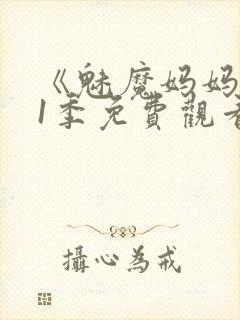 《魅魔妈妈
1季免費觀看
攝心為戒